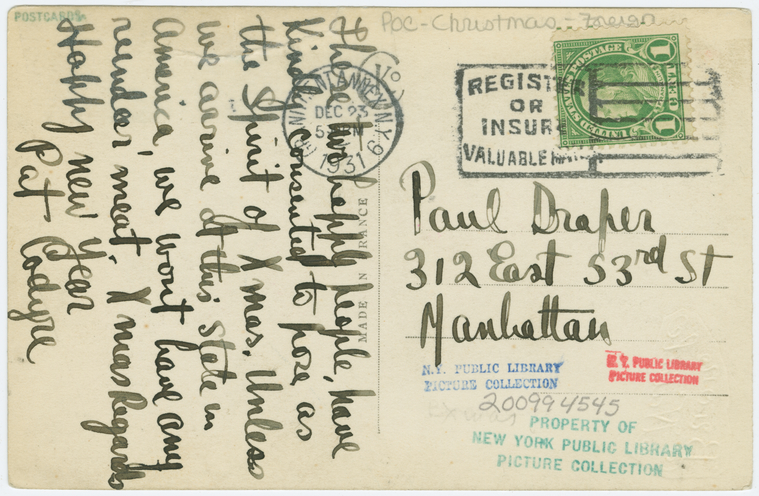 POSTCARDS
PoC - Christmas - Foreign
These two happy people, have
Kindly consented to pose as
the Spirit of Xmas. Unless
we arrive at this State in
America, we wont have any
reindeer meat. Xmas Regards
Happy new Year
Pat
GRAND CENTRAL ANNEX N.Y.
DEC 23
5 PM
1931
REGISTER
OR
INSURE
VALUABLE MAIL
UNITED STATES POSTAGE
1 CENT 1
MADE IN FRANCE
Paul Draper
312 East 53rd St
Manhattan
N.Y. PUBLIC LIBRARY
PICTURE COLLECTION
N.Y. PUBLIC LIBRARY
PICTURE COLLECTION
200994545
Xmas
PROPERTY OF
NEW YORK PUBLIC LIBRARY
PICTURE COLLECTION